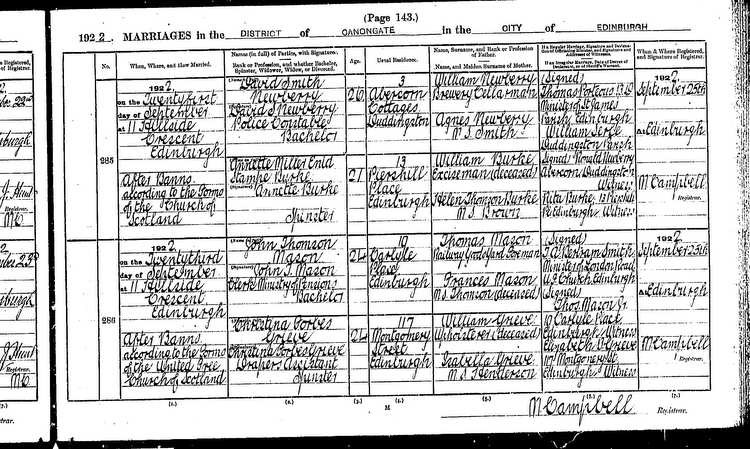 (Page 143.)
1922 MARRIAGES in the DISTRICT of CANONGATE in the CITY of EDINBURGH
No.
When, Where, and How Married.
Names (in full) of Parties, with Signatures.
Rank or Profession, and whether Bachelor, Spinster, Widower, Widow, or Divorced.
Age.
Usual Residence.
Name, Surname, and Rank or Profession of Father.
Name, and Maiden Surname of Mother.
When & Where Registered, and Signature of Registrar.
285
1922
on the Twentyfirst
day of September
at 11 Hillside
Crescent
Edinburgh
After Banns
according to the Forms
of the Church of
Scotland
David Smith
Newberry
(Signature) David S. Newberry
Police Constable
Bachelor
Annette Miller Enid
Stampe Burke
(Signature) Annette Burke
Spinster
26
21
3
Abercorn
Cottages
Duddingston
13
Piershill
Place
Edinburgh
William Newberry
Brewery Cellarman
Agnes Newberry
M.S. Smith
William Burke
Exciseman (deceased)
Helen Thomson Burke
M.S. Brown
(Signed)
Thomas Porteous B.D.
Minister of St James
Parish Edinburgh
William Serle
Duddingston Parish
Signed Ronald Newberry
Abercorn Duddingston
Witness
Rita Burke, 13 Piershill
Pl. Edinburgh Witness
1922
September 25th
at Edinburgh
M Campbell
Registrar.
286
1922
on the Twentythird
day of September
at 11 Hillside
Crescent
Edinburgh
After Banns
according to the Forms
of the United Free
Church of Scotland
John Thomson
Mason
(Signature) John T. Mason
Clerk Ministry of Pensions
Bachelor
Christina Forbes
Grieve
Christina Forbes Grieve
Drapers Assistant
Spinster
24
24
10
Carlyle
Place
Edinburgh
117
Montgomery
Street
Edinburgh
Thomas Mason
Railway Goods Yard Foreman
Frances Mason
M.S. Thomson (deceased)
William Grieve
Upholsterer (deceased)
Isabella Grieve
M.S. Henderson
(Signed)
J. A. Bertram Smith
Minister of London Road
U.F. Church Edinburgh
(Signed)
Thos. Mason Jr.
10 Carlyle Place
Edinburgh Witness
Elizabeth Grieve
117 Montgomery St.
Edinburgh Witness
1922
September 25th
at Edinburgh
M Campbell
Registrar.
M
M Campbell Registrar.